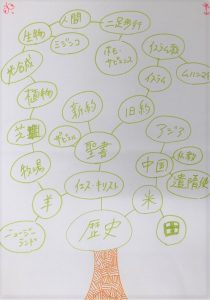 人間
二足歩行
生物
ミジンコ
ホモ・
サピエンス
イスラム教
光合成
イスラム
ムハンマド
植物
新約
旧約
アジア
芝
聖書
中国
仏教
牧場
遣隋使
羊
イエス・キリスト
米
田
ニュージー
ランド
歴史